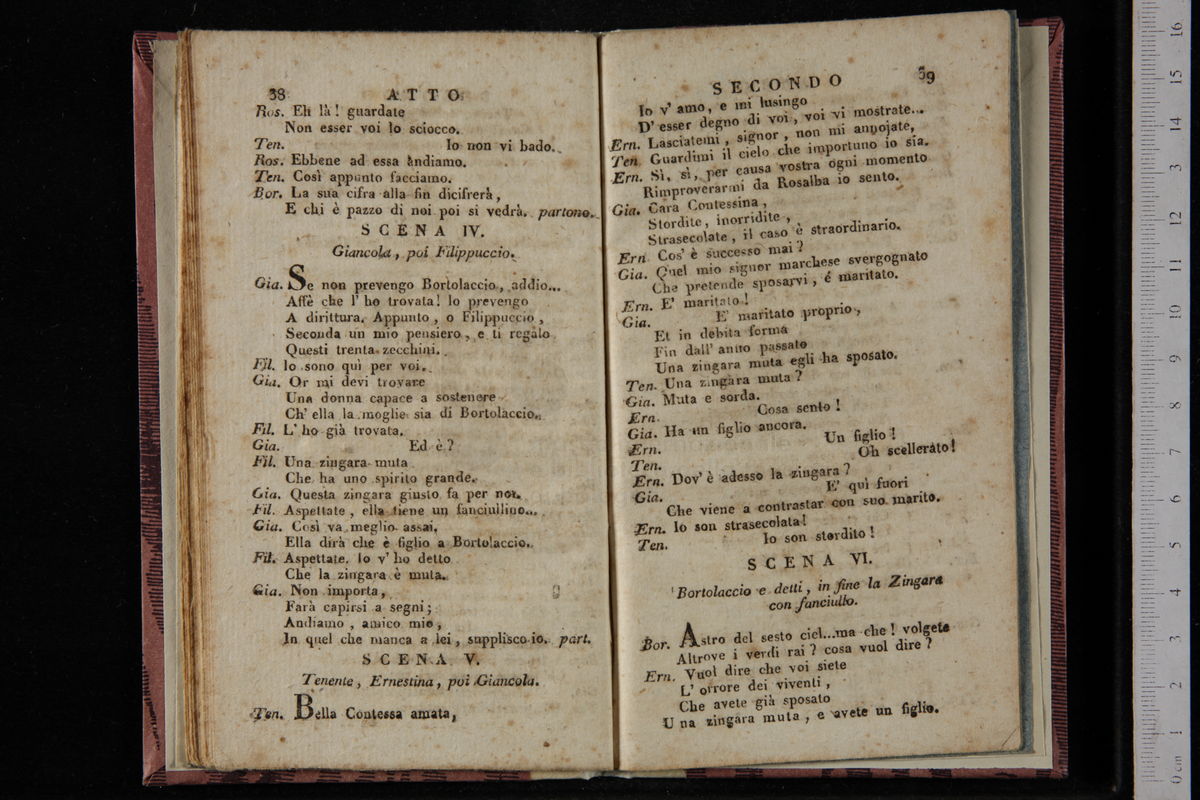 38 ATTO
Ros. Eh là! guardate
Non esser voi lo sciocco.
Ten. Io non vi bado.
Ros. Ebbene ad essa andiamo.
Ten. Così appunto facciamo.
Bor. La sua cifra alla fin dicifrerà,
E chi è pazzo di noi poi si vedrà. partono.
SCENA IV.
Giancola, poi Filippuccio.
Gia. Se non prevengo Bortolaccio, addio...
Affè che l' ho trovata! lo prevengo
A dirittura. Appunto, o Filippuccio,
Seconda un mio pensiero, e ti regalo
Questi trenta zecchini.
Fil. Io sono quì per voi.
Gia. Or mi devi trovare
Una donna capace a sostenere
Ch' ella la moglie sia di Bortolaccio.
Fil. L' ho già trovata.
Gia. Ed è?
Fil. Una zingara muta
Che ha uno spirito grande.
Gia. Questa zingara giusto fa per noi.
Fil. Aspettate, ella tiene un fanciullino...
Gia. Così va meglio assai.
Ella dirà che è figlio a Bortolaccio.
Fil. Aspettate. Io v' ho detto
Che la zingara è muta.
Gia. Non importa,
Farà capirsi a segni;
Andiamo, amico mio,
In quel che manca a lei, supplisco io. part.
SCENA V.
Tenente, Ernestina, poi Giancola.
Ten. Bella Contessa amata,
SECONDO 39
Io v' amo, e mi lusingo
D' esser degno di voi, voi vi mostrate...
Ern. Lasciatemi, signor, non mi annojate,
Ten. Guardimi il cielo che importuno io sia.
Ern. Sì, sì, per causa vostra ogni momento
Rimproverarmi da Rosalba io sento.
Gia. Cara Contessina,
Stordite, inorridite,
Strasecolate, il caso è straordinario.
Ern Cos' è successo mai?
Gia. Quel mio signor marchese svergognato
Che pretende sposarvi, é maritato.
Ern. E' maritato!
Gia. E' maritato proprio,
Et in debita forma
Fin dall' anno passato
Una zingara muta egli ha sposato.
Ten. Una zingara muta?
Gia. Muta e sorda.
Ern. Cosa sento!
Gia. Ha un figlio ancora.
Ern. Un figlio!
Ten. Oh scellerato!
Ern. Dov' è adesso la zingara?
Gia. E' quì fuori
Che viene a contrastar con suo marito.
Ern. Io son strasecolata!
Ten. Io son stordito!
SCENA VI.
Bortolaccio e detti, in fine la Zingara
con fanciullo.
Bor. Astro del sesto ciel...ma che! volgete
Altrove i verdi rai? cosa vuol dire?
Ern. Vuol dire che voi siete
L' orrore dei viventi,
Che avete già sposato
Una zingara muta, e avete un figlio.
0 cm 1 2 3 4 5 6 7 8 9 10 11 12 13 14 15 16